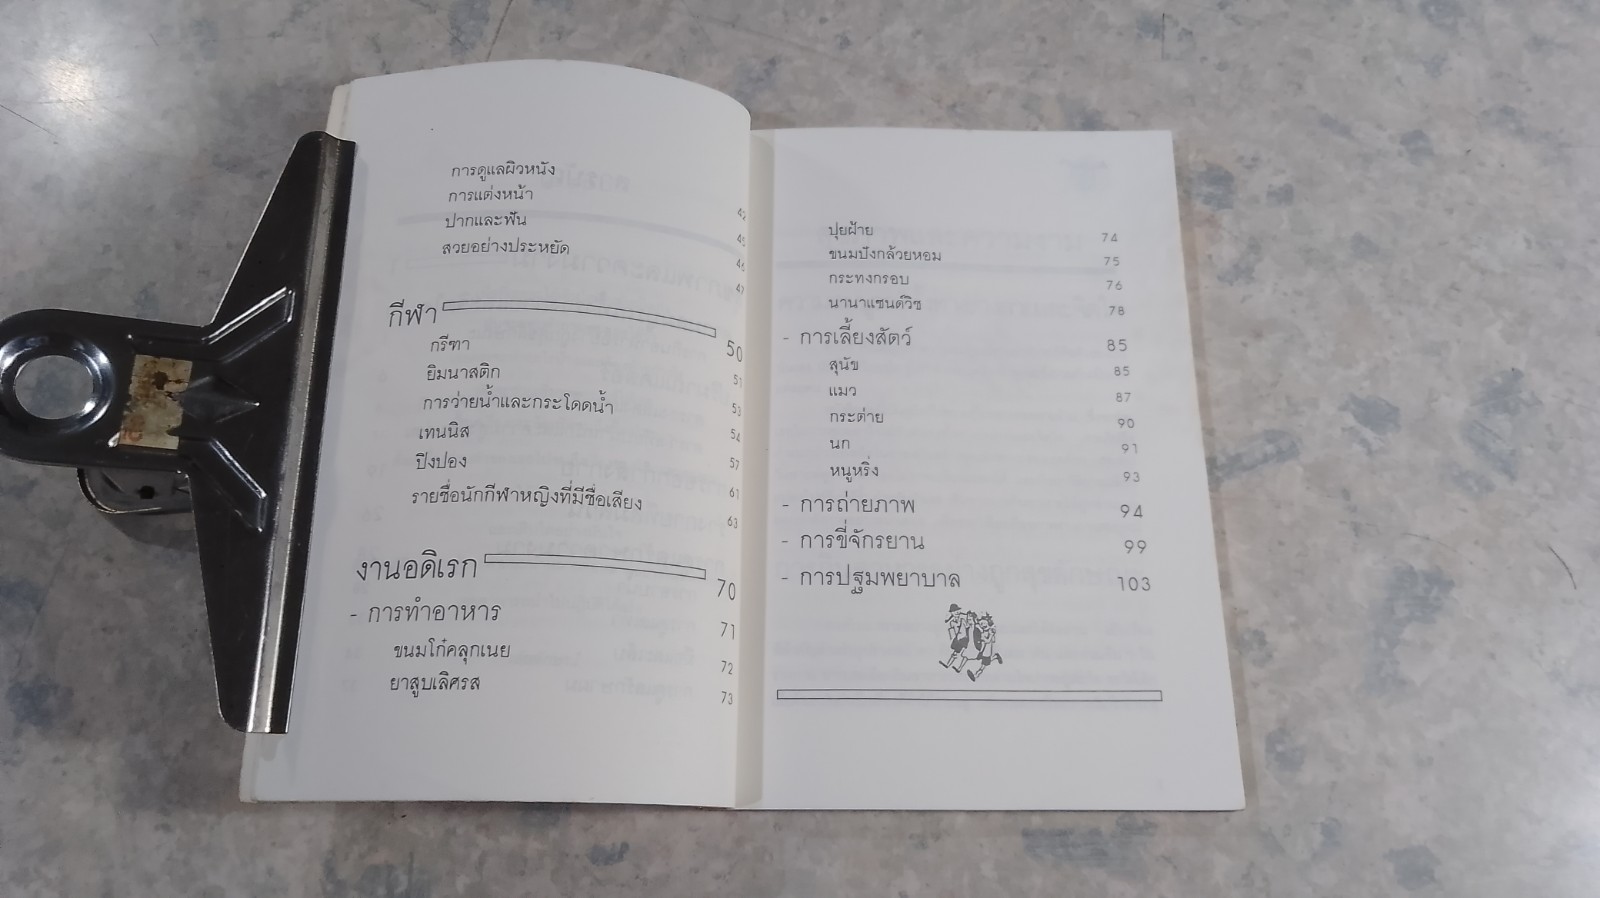 การดูแลผิวหนัง 42
การแต่งหน้า 45
ปากและฟัน 46
สวยอย่างประหยัด 47
กีฬา 50
กรีฑา 51
ยิมนาสติก 53
การว่ายน้ำและกระโดดน้ำ 54
เทนนิส 57
ปิงปอง 61
รายชื่อนักกีฬาหญิงที่มีชื่อเสียง 63
งานอดิเรก 70
- การทำอาหาร 71
ขนมโก๋คลุกเนย 72
ยาสูบเลิศรส 73
ปุยฝ้าย 74
ขนมปังกล้วยหอม 75
กระทงกรอบ 76
นานาแซนด์วิช 78
- การเลี้ยงสัตว์ 85
สุนัข 85
แมว 87
กระต่าย 90
นก 91
หนูหริ่ง 93
- การถ่ายภาพ 94
- การขี่จักรยาน 99
- การปฐมพยาบาล 103